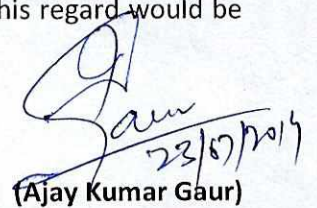 his regard would be
Gaur
23/07/2019
(Ajay Kumar Gaur)